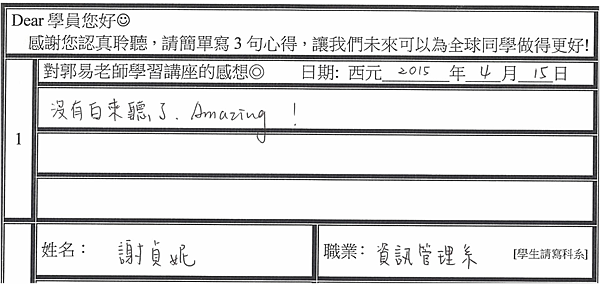 Dear 學員您好☺
感謝您認真聆聽，請簡單寫3句心得，讓我們未來可以為全球同學做得更好!
對郭易老師學習講座的感想◎ 日期: 西元 2015 年 4 月 15 日
1
沒有白來聽了. Amazing !
姓名： 謝貞妮 職業: 資訊管理系 [學生請寫科系]